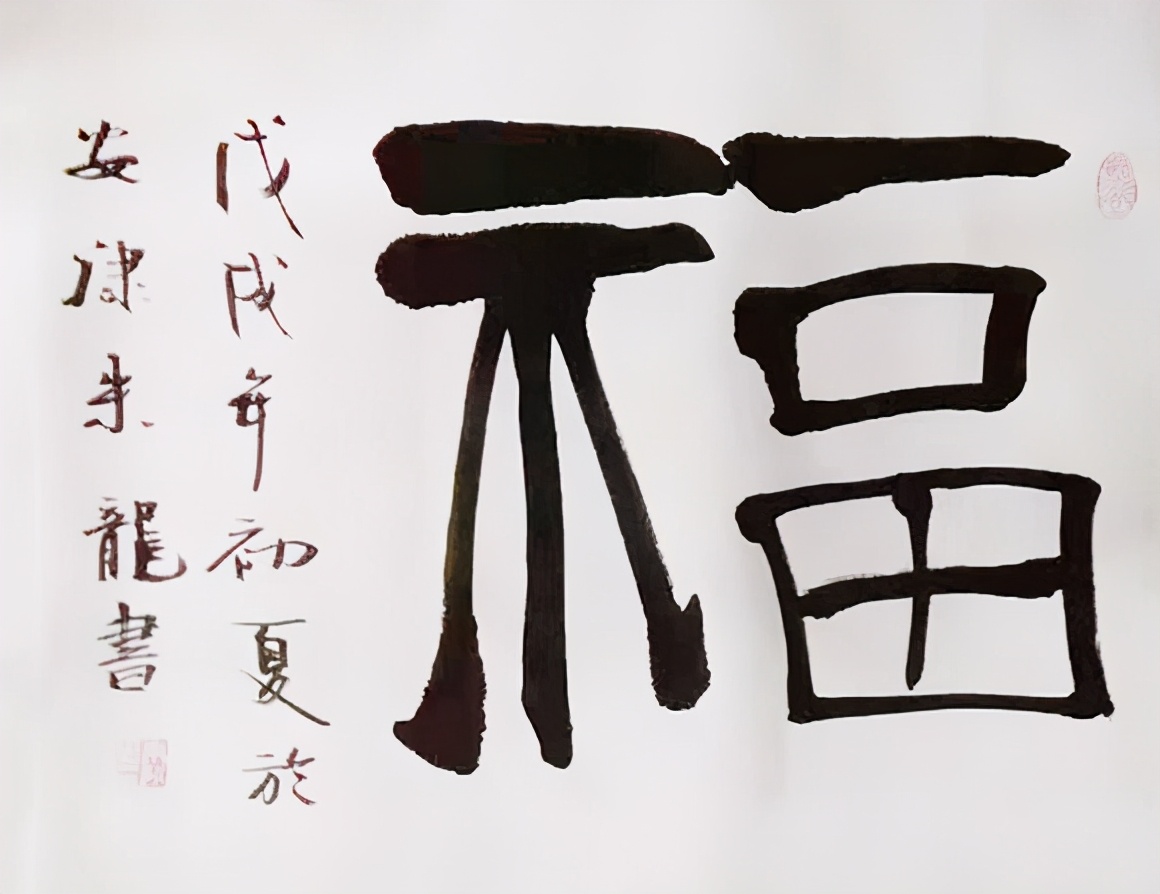 福
戊戌年初夏於
安康朱龍書